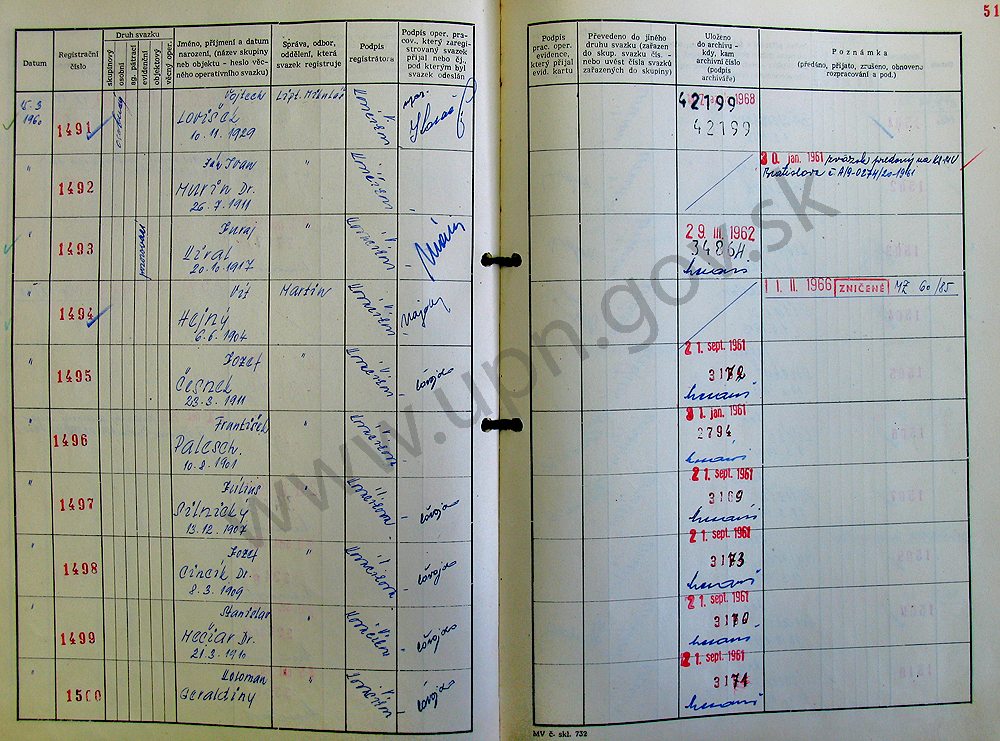 51
Datum
Registrační číslo
Druh svazku
skupinový
osobní
ag. pátrací
evidenční
objektový
věcný oper.
Jméno, příjmení a datum narození, (název skupiny neb objektu - heslo věcného operativního svazku)
Správa, odbor, oddělení, která svazek registruje
Podpis registrátora
Podpis oper. prac., který zaregistrovaný svazek přijal nebo čj., pod kterým byl svazek odeslán
Podpis prac. oper. evidence, který přijal evid. kartu
Převedeno do jiného druhu svazku (zařazen do skup. svazku čís. - nebo uvést čísla svazků zařazených do skupiny)
Uloženo do archivu - kdy, kam archivní číslo (podpis archiváře)
Poznámka
(předáno, přijato, zrušeno, obnoveno rozpracování a pod.)
1960
1491
Vojtech
Lovíšek
10.11.1929
Lipt. Mikuláš
1968
42199
42199
"
1492
Ján Ivan
Murín Dr.
26.7.1911
"
30. jan. 1961 zväzok predaný na KS-MV
Bratislava č. A/9-0274/20-1961
"
1493
Juraj
Víral
20.10.1917
"
29. III. 1962
34864
"
1494
Vít
Hejný
6.6.1904
Martin
11. II. 1966 ZNIČENÉ MZ 60/85
"
1495
Jozef
Česnek
23.3.1911
"
21. sept. 1961
3172
"
1496
František
Palesch.
10.2.1901
"
31. jan. 1961
2794
"
1497
Július
Pilnický
13.12.1907
"
21. sept. 1961
3169
"
1498
Jozef
Cincík Dr.
8.3.1909
"
21. sept. 1961
3173
"
1499
Stanislav
Mečiar Dr.
21.3.1910
"
21. sept. 1961
3170
"
1500
Koloman
Geraldiny
"
21. sept. 1961
3171
MV č. skl. 732
www.upn.gov.sk